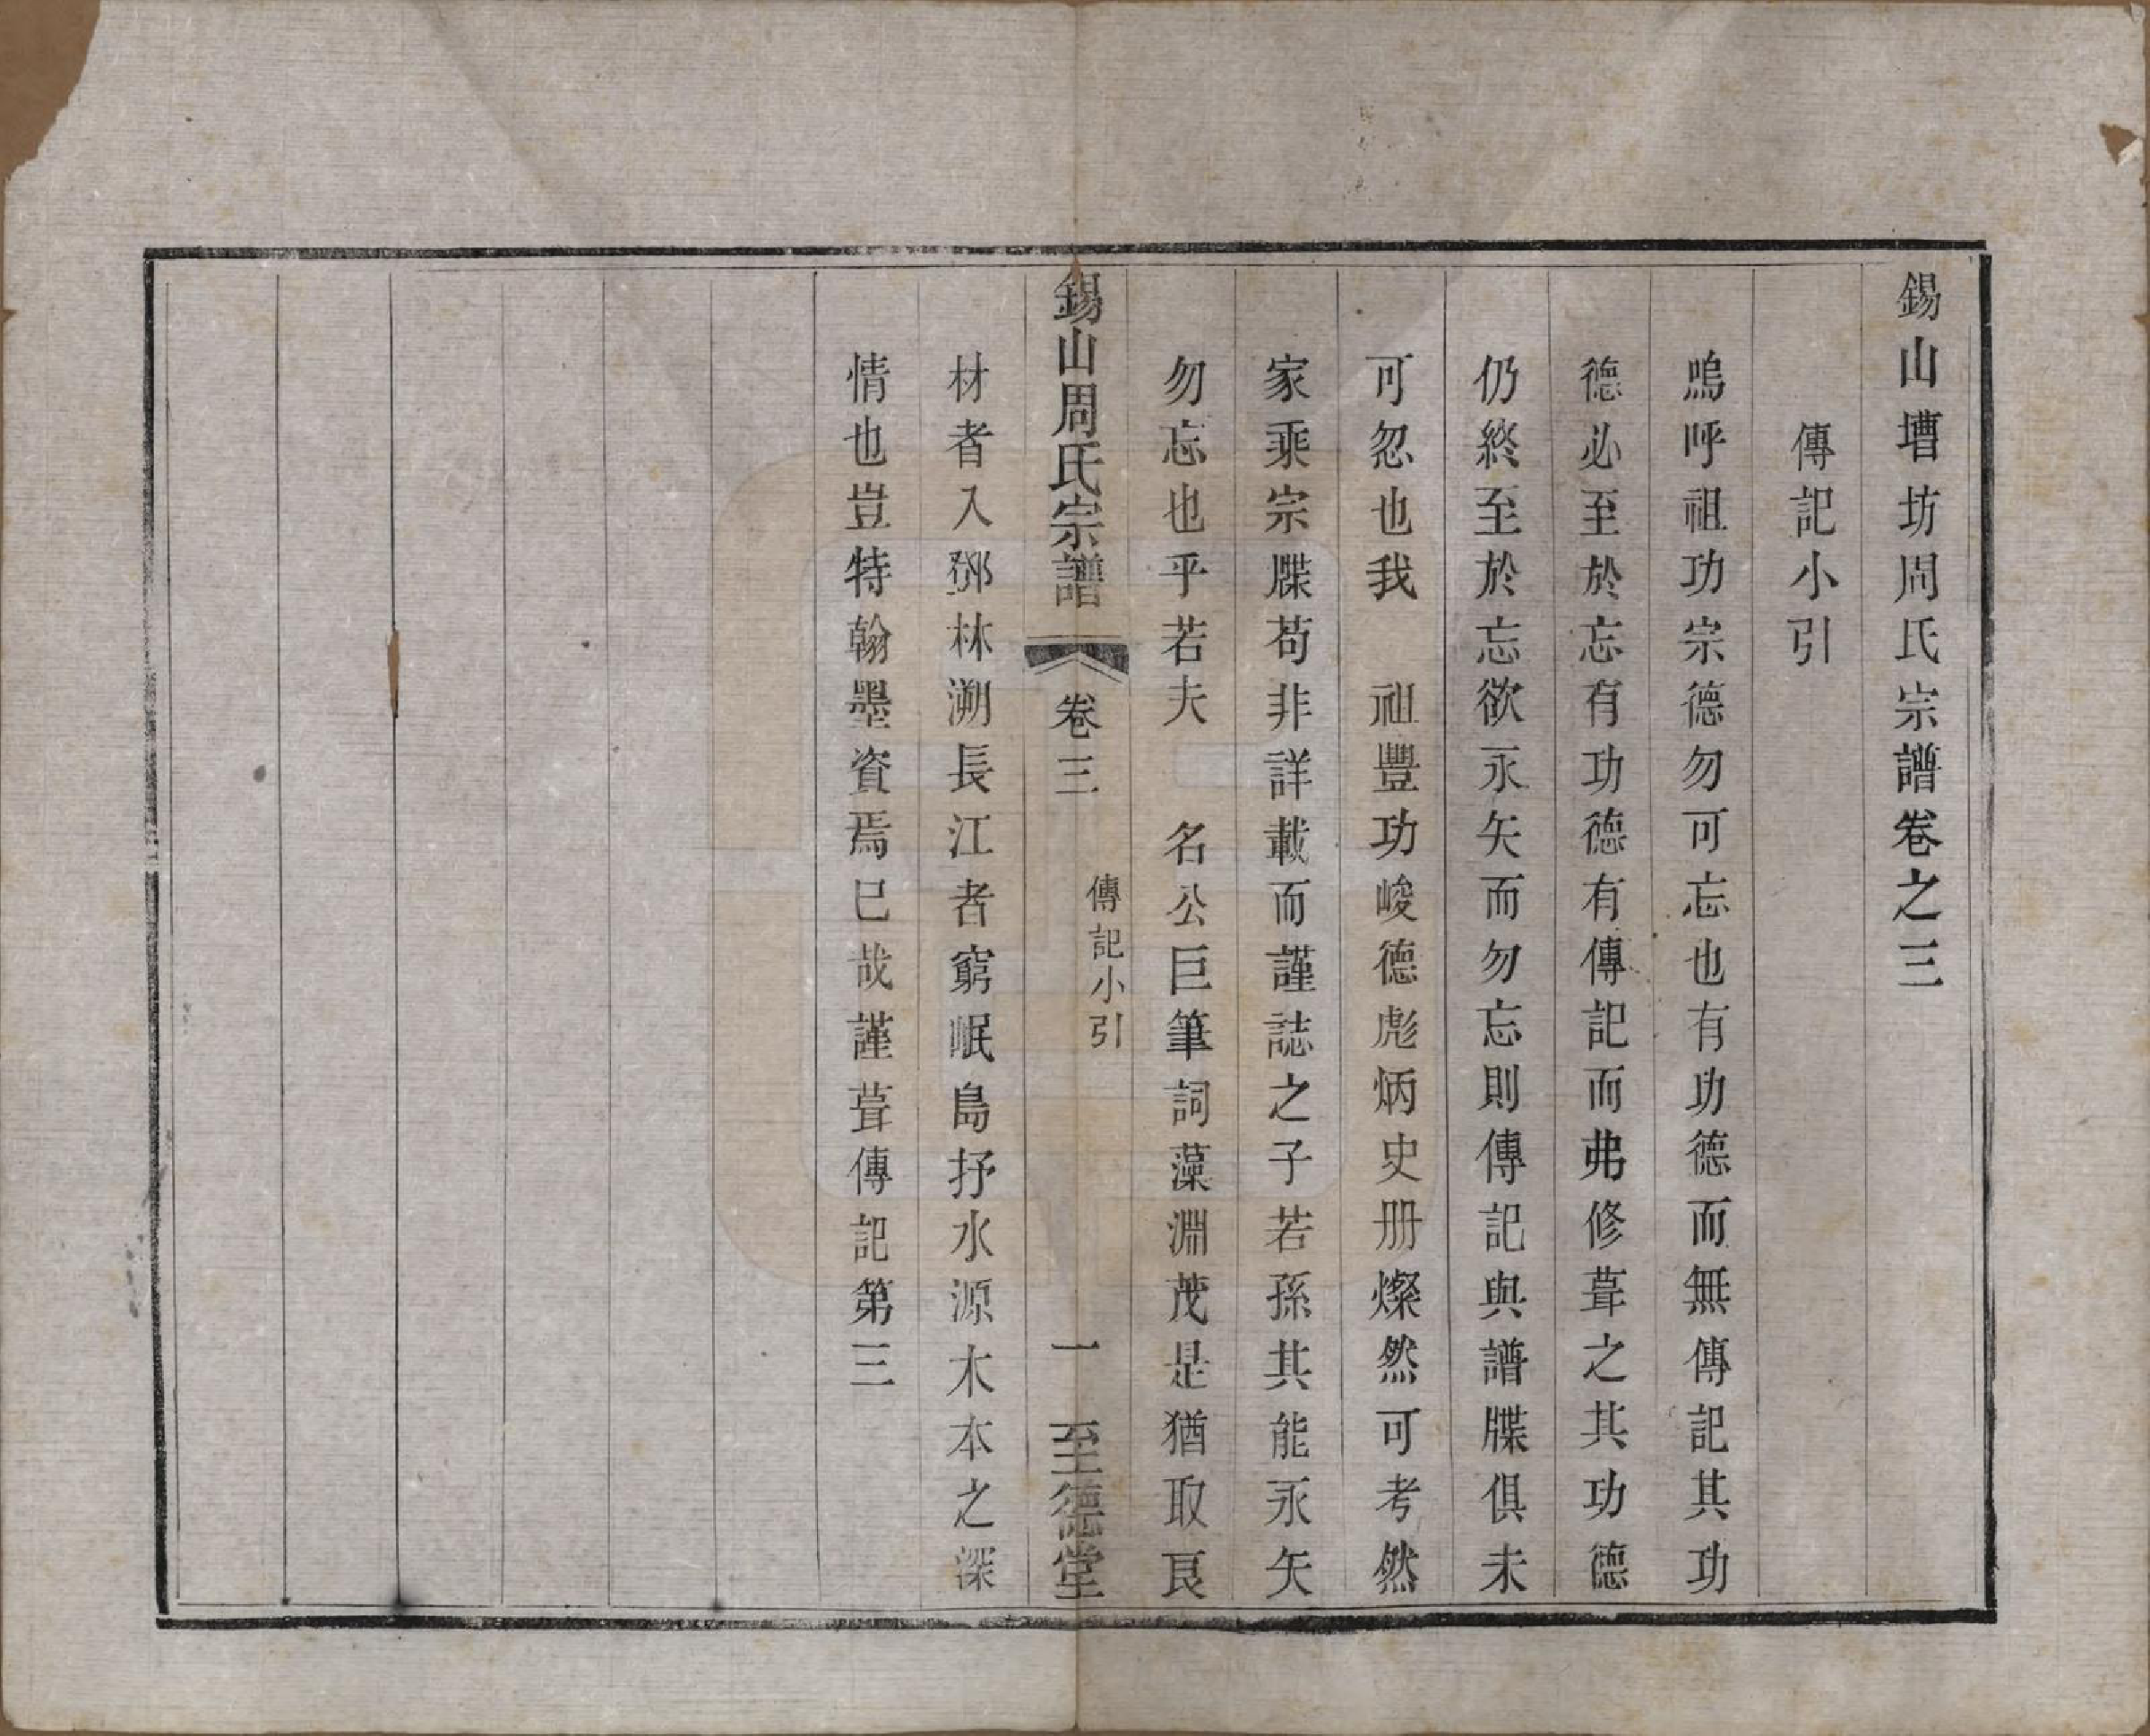 錫山墰坊周氏宗譜卷之三
傳記小引
嗚呼祖功宗德勿可忘也有功德而無傳記其功
德必至於忘有功德有傳記而弗修葺之其功德
仍終至於忘欲永矢而勿忘則傳記與譜牒俱未
可忽也我　祖豐功峻德彪炳史册燦然可考然
家乘宗牒苟非詳載而謹誌之子若孫其能永矢
勿忘也乎若夫　名公巨筆詞藻淵茂是猶取良
錫山周氏宗譜　卷三　傳記小引　一　至德堂
材者入鄧林溯長江者窮岷島抒水源木本之深
情也豈特翰墨資焉已哉謹葺傳記第三